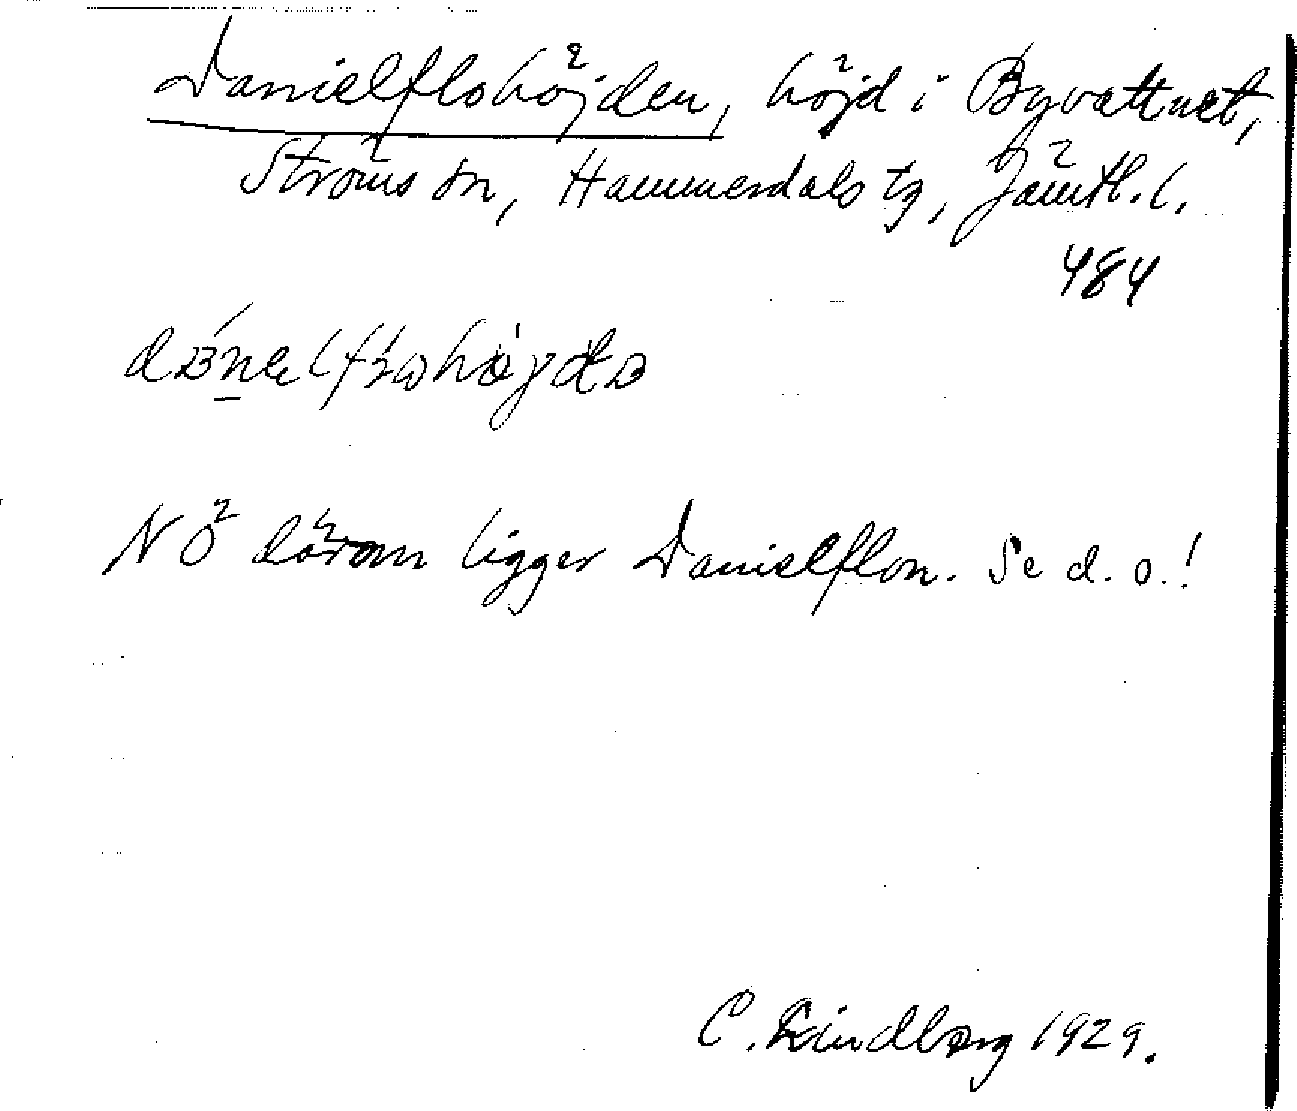 Danielflohöjden, höjd i Byvattnet,
Ströms sn, Hammerdals tg, Jämtl. l.
484
NÖ därom ligger Danielflon. Se d. o.!
C. Lindberg 1929.